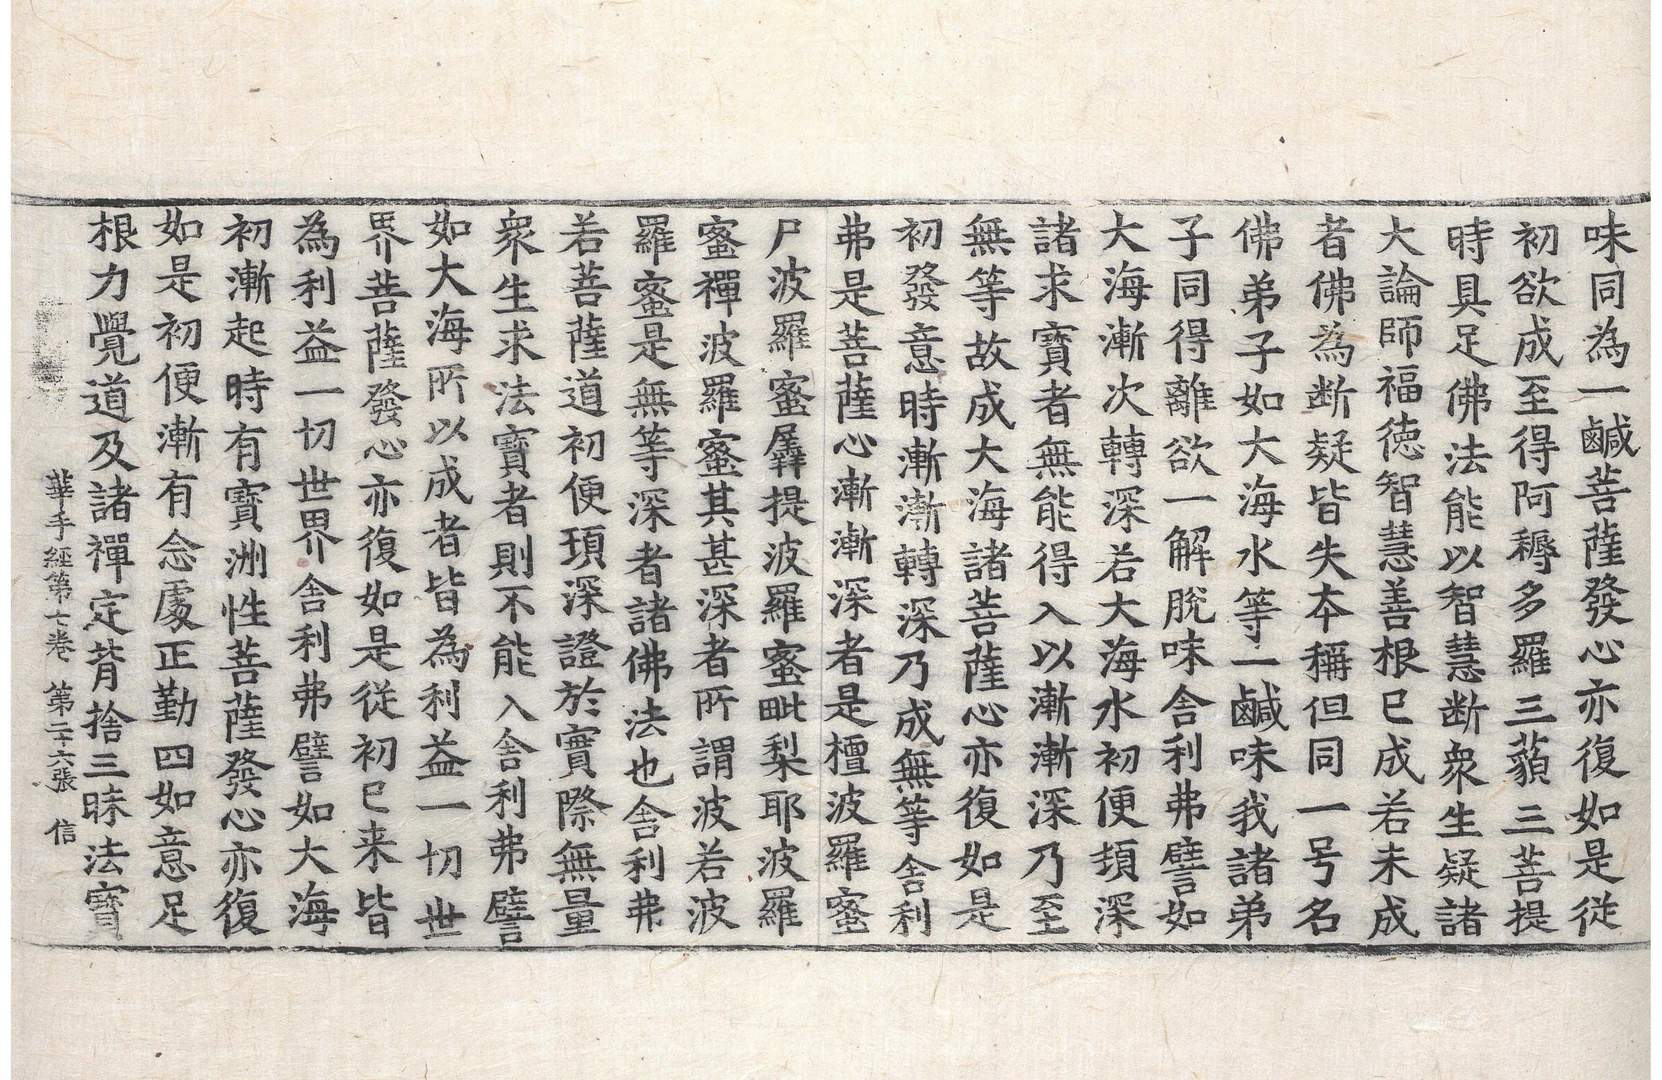 味同為一鹹菩薩發心亦復如是從
初欲成至得阿耨多羅三藐三菩提
時具足佛法能以智慧断衆生疑諸
大論師福徳智慧善根已成若未成
者佛為断疑皆失夲稱但同一号名
佛弟子如大海水等一鹹味我諸弟
子同得離欲一解脫味舎利弗譬如
大海漸次轉深若大海水初便頓深
諸求寶者無能得入以漸漸深乃至
無等故成大海諸菩薩心亦復如是
初發意時漸漸轉深乃成無等舎利
弗是菩薩心漸漸深者是檀波羅蜜
尸波羅蜜羼提波羅蜜毗梨耶波羅
蜜禪波羅蜜其甚深者所謂波若波
羅蜜是無等深者諸佛法也舎利弗
若菩薩道初便頊深證於實際無量
衆生求法寶者則不能入舎利弗譬
如大海所以成者皆為利益一切世
界菩薩發心亦復如是從初已来皆
為利益一切世界舎利弗譬如大海
初漸起時有寶洲性菩薩發心亦復
如是初便漸有念處正勤四如意足
根力覺道及諸禪定背捨三昧法寶
華手經第七卷 第二十六張 信